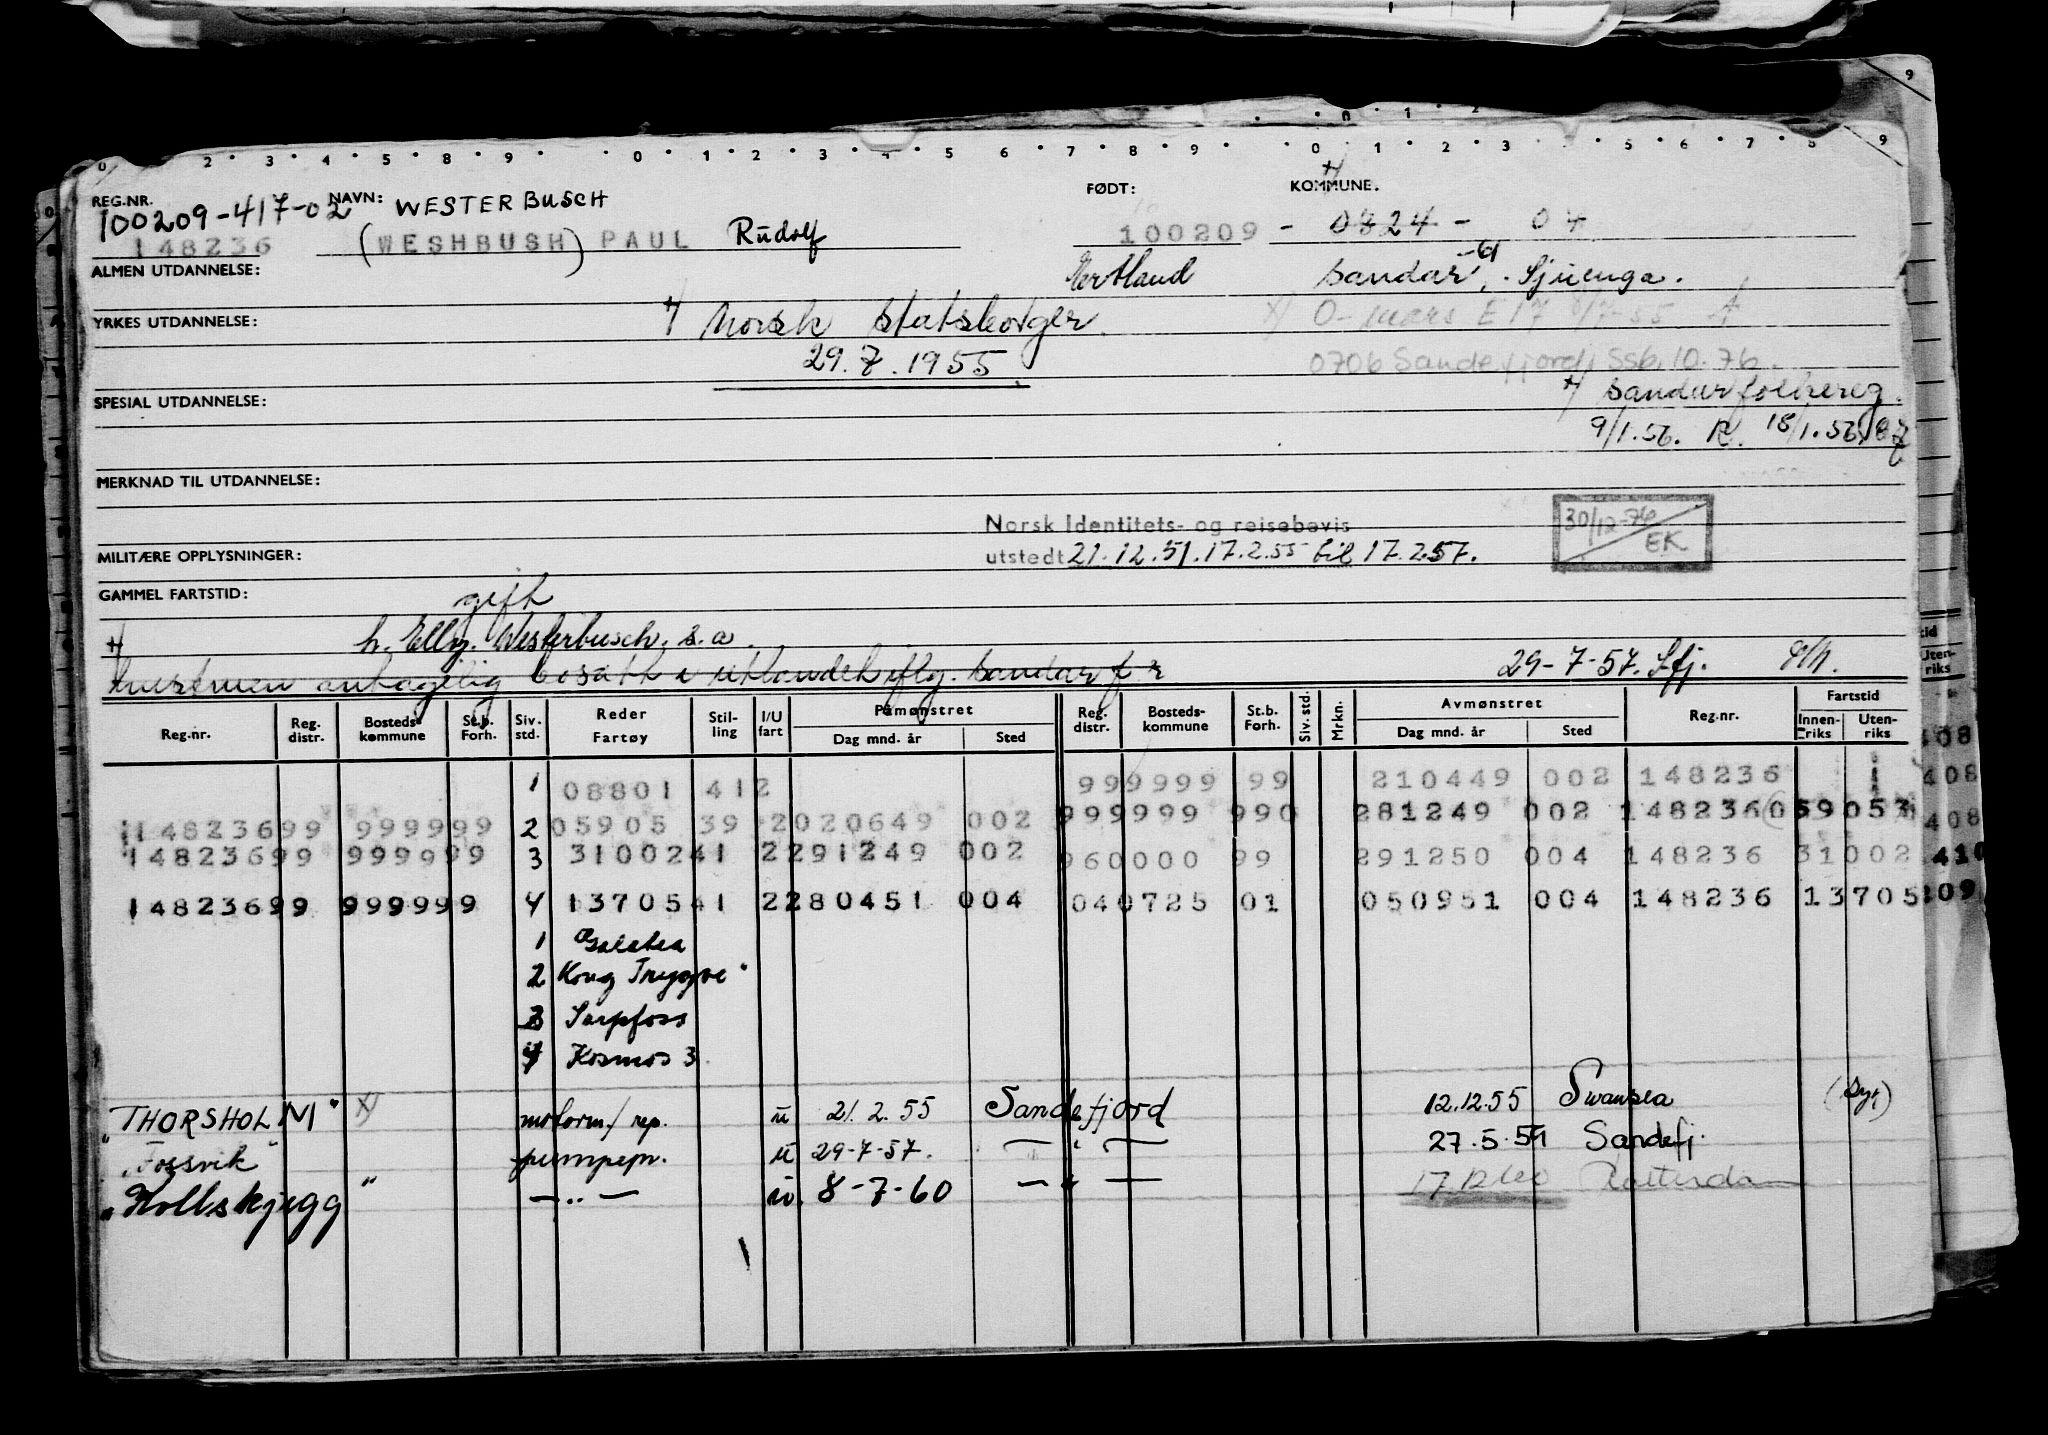 REG.NR. NAVN: FØDT: KOMMUNE.
100209-417-02 WESTERBUSCH
148236 (WESHBUSH) PAUL Rudolf 100209 - 0824 - 04
ALMEN UTDANNELSE: Sandar
YRKES UTDANNELSE: Norsk statsborger
29.7.1955 0706 Sandefjord, Ssb, 10.76.
SPESIAL UTDANNELSE: Sandar folkereg.
9/1.56. R. 18/1.56
MERKNAD TIL UTDANNELSE:
Norsk Identitets- og reisebevis 30/12-76
MILITÆRE OPPLYSNINGER: utstedt 21.12.51. 17.2.55 til 17.2.57. EK
GAMMEL FARTSTID:
gift
h. Elly. Westerbusch. s.a.
bosatt i utlandet iflg. Sandar f r 29-7-57. Sfj.
Reg.nr. Reg. distr. Bosteds- kommune St.b. Forh. Siv. std. Reder Fartøy Stil- ling I/U fart Påmønstret Dag mnd. år Sted Reg. distr. Bosteds- kommune St.b. Forh. Siv. std. Mrkn. Avmønstret Dag mnd. år Sted Reg.nr. Fartstid Innen- riks Uten- riks
1 08801 412 999999 99 210449 002 148236
14823699 999999 2 05905 39 2020649 002 999999 990 281249 002 148236059053
14823699 999999 3 3100241 2291249 002 960000 99 291250 004 148236 31002
14823699 999999 4 1370541 2280451 004 040725 01 050951 004 148236 13705
1 Galatea
2 Kong Tryggve"
3 Sarpfoss
4 Kosmos 3.
"THORSHOLM" x) motorm/rep. u 21.2.55 Sandefjord 12.12.55 Swansea (Syk)
"Fossvik" pumpem. u 29-7-57. — " — 27.5.59 Sandefj.
"Kollskjegg" — " — u. 8-7-60 — " — 17.12.60 Rotterdam